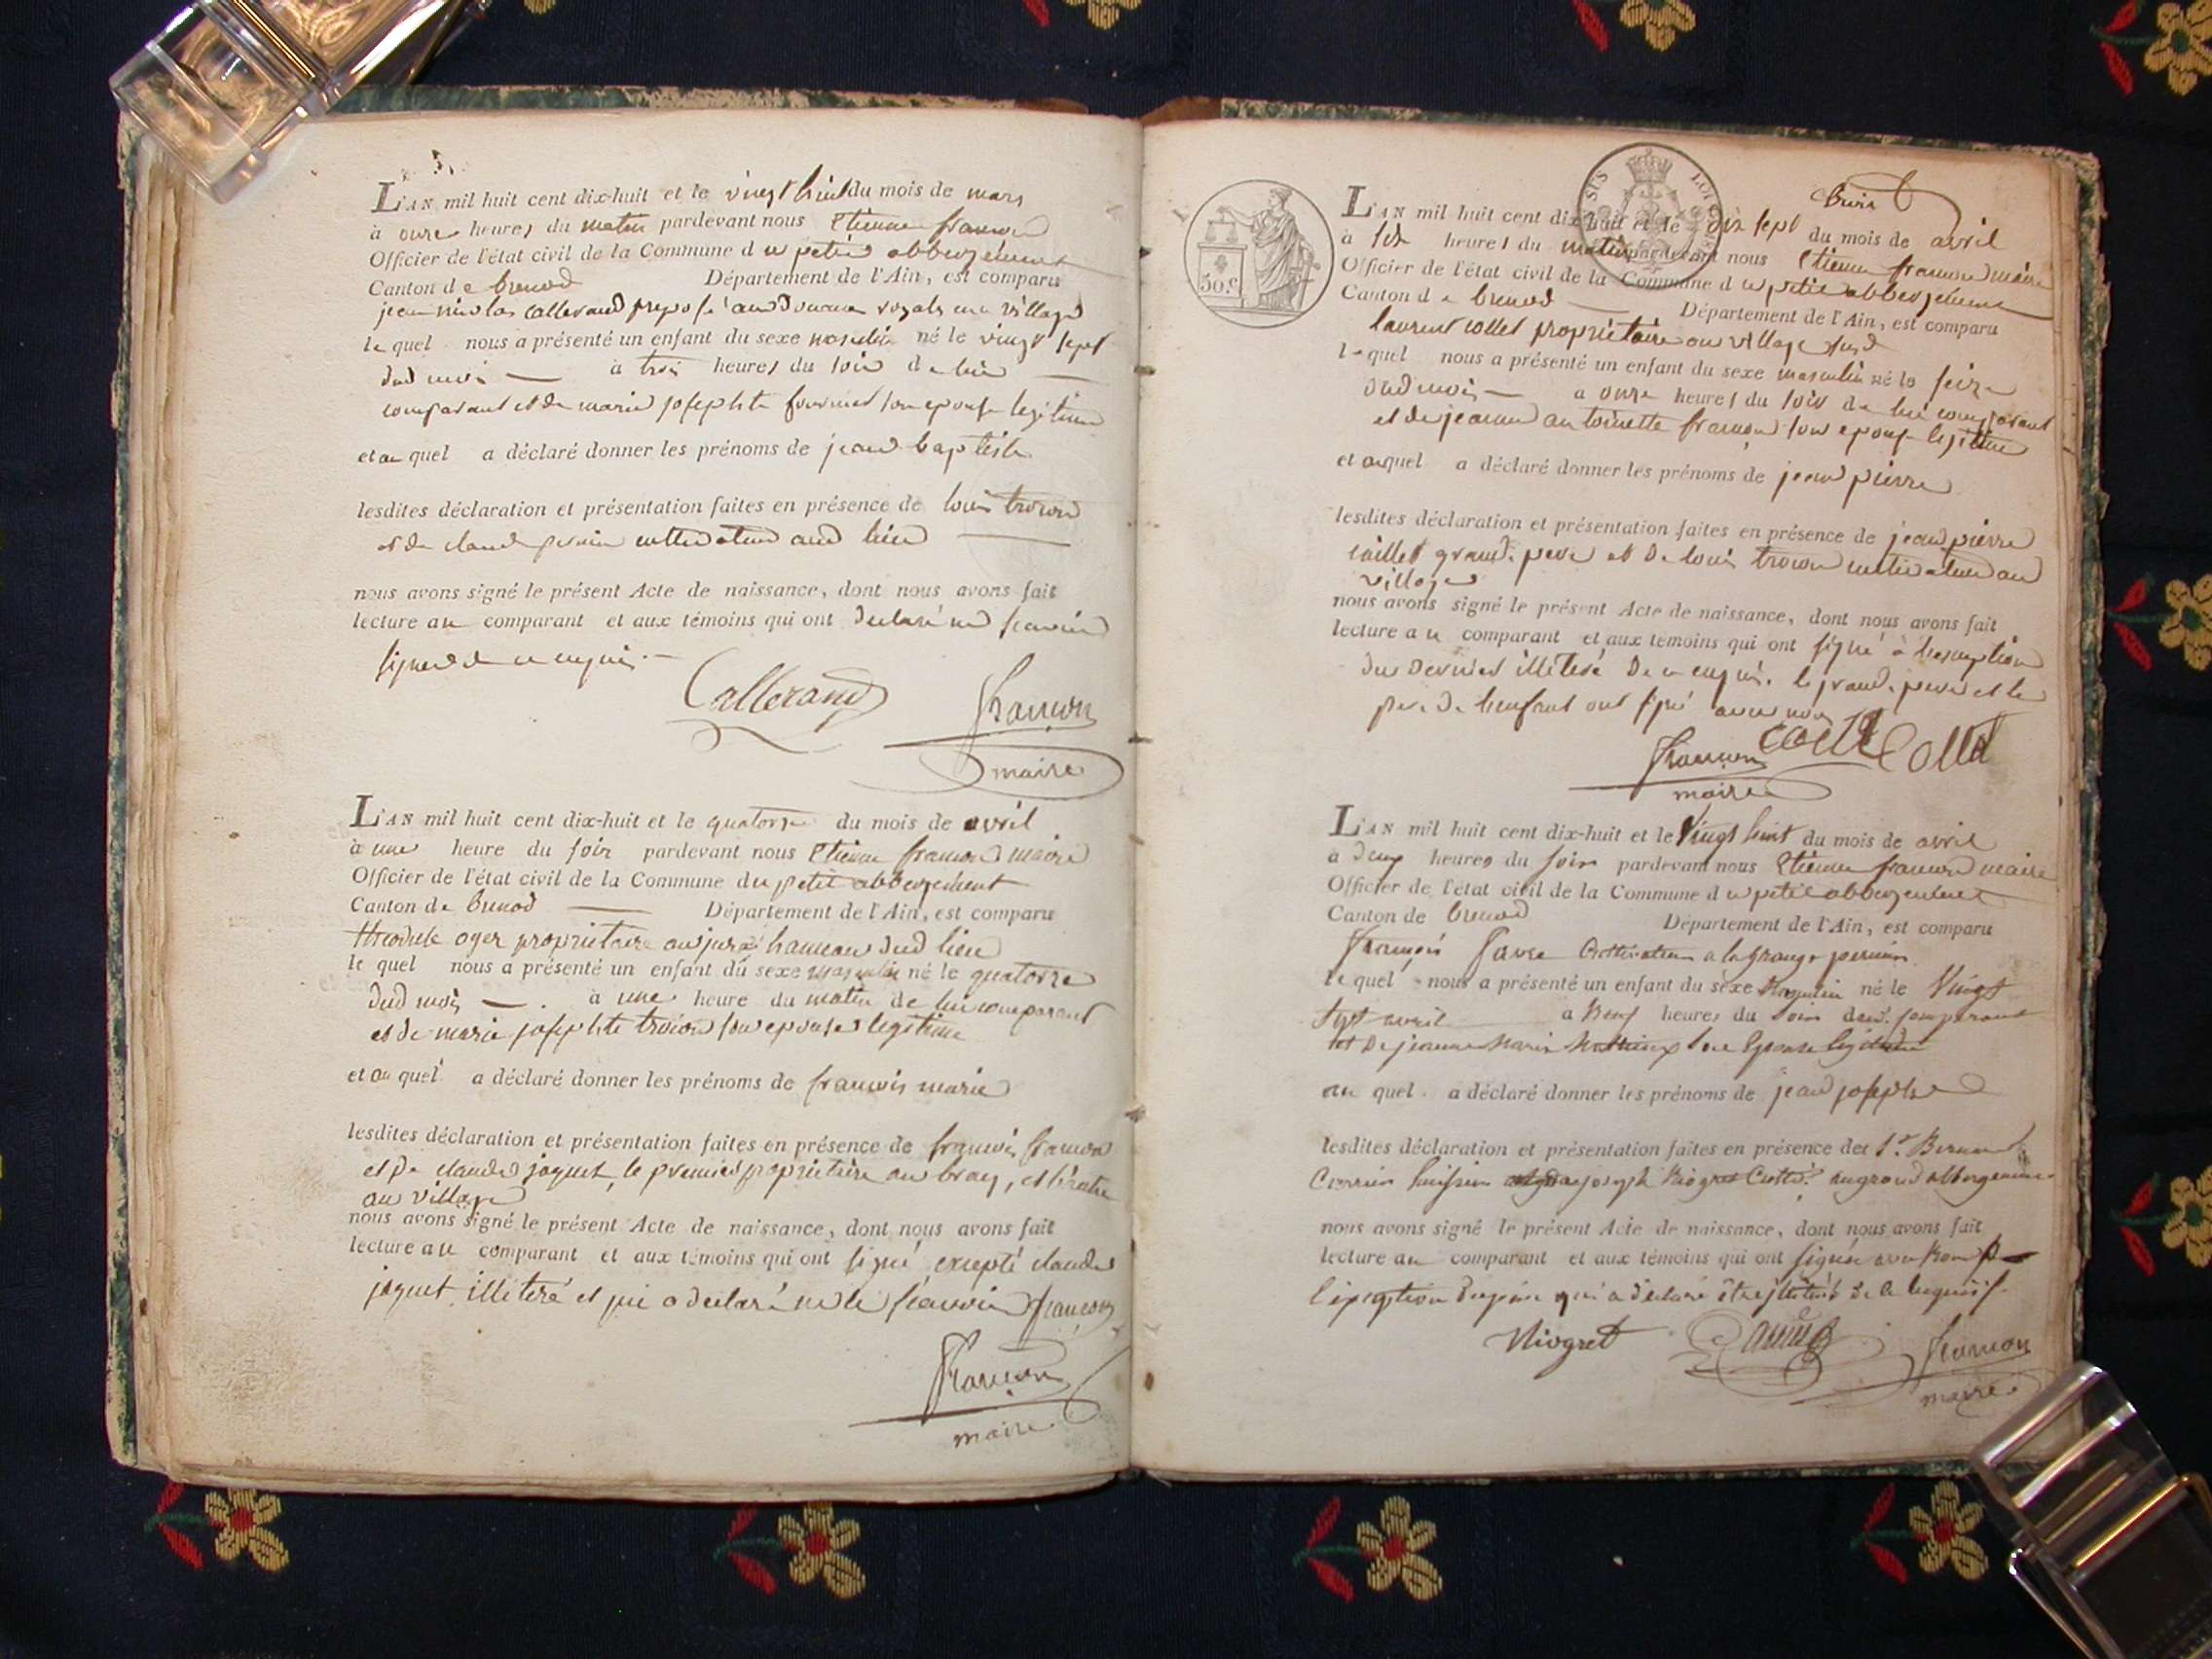 3.
L'AN mil huit cent dix-huit et le vingt huit du mois de mars
à onze heures du matin pardevant nous etienne françon
Officier de l'état civil de la Commune du petit abbergement
Canton de brenod Département de l'Ain, est comparu
jean nicolas callerand preposé aux douanes royales au village
lequel nous a présenté un enfant du sexe masculin né le vingt sept
dud mois à trois heures du soir de lui
comparant et de marie josephte fournier son epouse legitime
et auquel a déclaré donner les prénoms de jean baptiste
lesdites déclaration et présentation faites en présence de louis troccon
et de claude perrin cultivateurs aud lieu
nous avons signé le présent Acte de naissance, dont nous avons fait
lecture au comparant et aux témoins qui ont declaré ne savoir
signer de ce enquis.
Callerand françon
maire
L'AN mil huit cent dix-huit et le quatorze du mois de avril
à une heure du soir pardevant nous etienne françon maire
Officier de l'état civil de la Commune du petit abbergement
Canton de brenod Département de l'Ain, est comparu
oger propriétaire au jura hameau dud lieu
lequel nous a présenté un enfant du sexe masculin né le quatorze
dud mois à une heure du matin de lui comparant
et de marie josephte troccon son epouse legitime
et auquel a déclaré donner les prénoms de françois marie
lesdites déclaration et présentation faites en présence de françois françon
et de claude joquet, le premier propriétaire au bray, et l'autre
au village
nous avons signé le présent Acte de naissance, dont nous avons fait
lecture au comparant et aux témoins qui ont signé excepté claude
joquet illiteré et qui a declaré ne le scavoir françon
françon
maire
30.c
L'AN mil huit cent dix-huit et le dix sept du mois de avril
à heures du matin pardevant nous etienne françon maire
Officier de l'état civil de la Commune du petit abbergement
Canton de brenod Département de l'Ain, est comparu
laurent collet propriétaire au village susd
lequel nous a présenté un enfant du sexe masculin né le seize
dud mois à onze heures du soir de lui comparant
et de jeanne antoinette françon son epouse legitime
et auquel a déclaré donner les prénoms de jean pierre
lesdites déclaration et présentation faites en présence de jean pierre
collet grand-pere et de louis troccon cultivateur au
village
nous avons signé le présent Acte de naissance, dont nous avons fait
lecture au comparant et aux temoins qui ont signé à l'exception
du dernier illiteré de ce enquis. le grand-pere et le
pere de l'enfant ont signé avec nous
françon collet Collet
maire
L'AN mil huit cent dix-huit et le Vingt huit du mois de avril
à deux heures du soir pardevant nous etienne françon maire
Officier de l'état civil de la Commune du petit abbergement
Canton de brenod Département de l'Ain, est comparu
François Cultivateur a la grange perrin
lequel nous a présenté un enfant du sexe Masculin né le Vingt
Sept avril à neuf heures du Soir dud. comparant
et De jeanne Marie Mathieux Son Epouse legitime
auquel a déclaré donner les prénoms de jean joseph
lesdites déclaration et présentation faites en présence des Sr
huissier joseph Niogret Cultr. au grand abbergement
nous avons signé le présent Acte de naissance, dont nous avons fait
lecture au comparant et aux témoins qui ont signés avec nous
l'exception du père qui a declaré être illiteré de ce
Niogret françon
maire